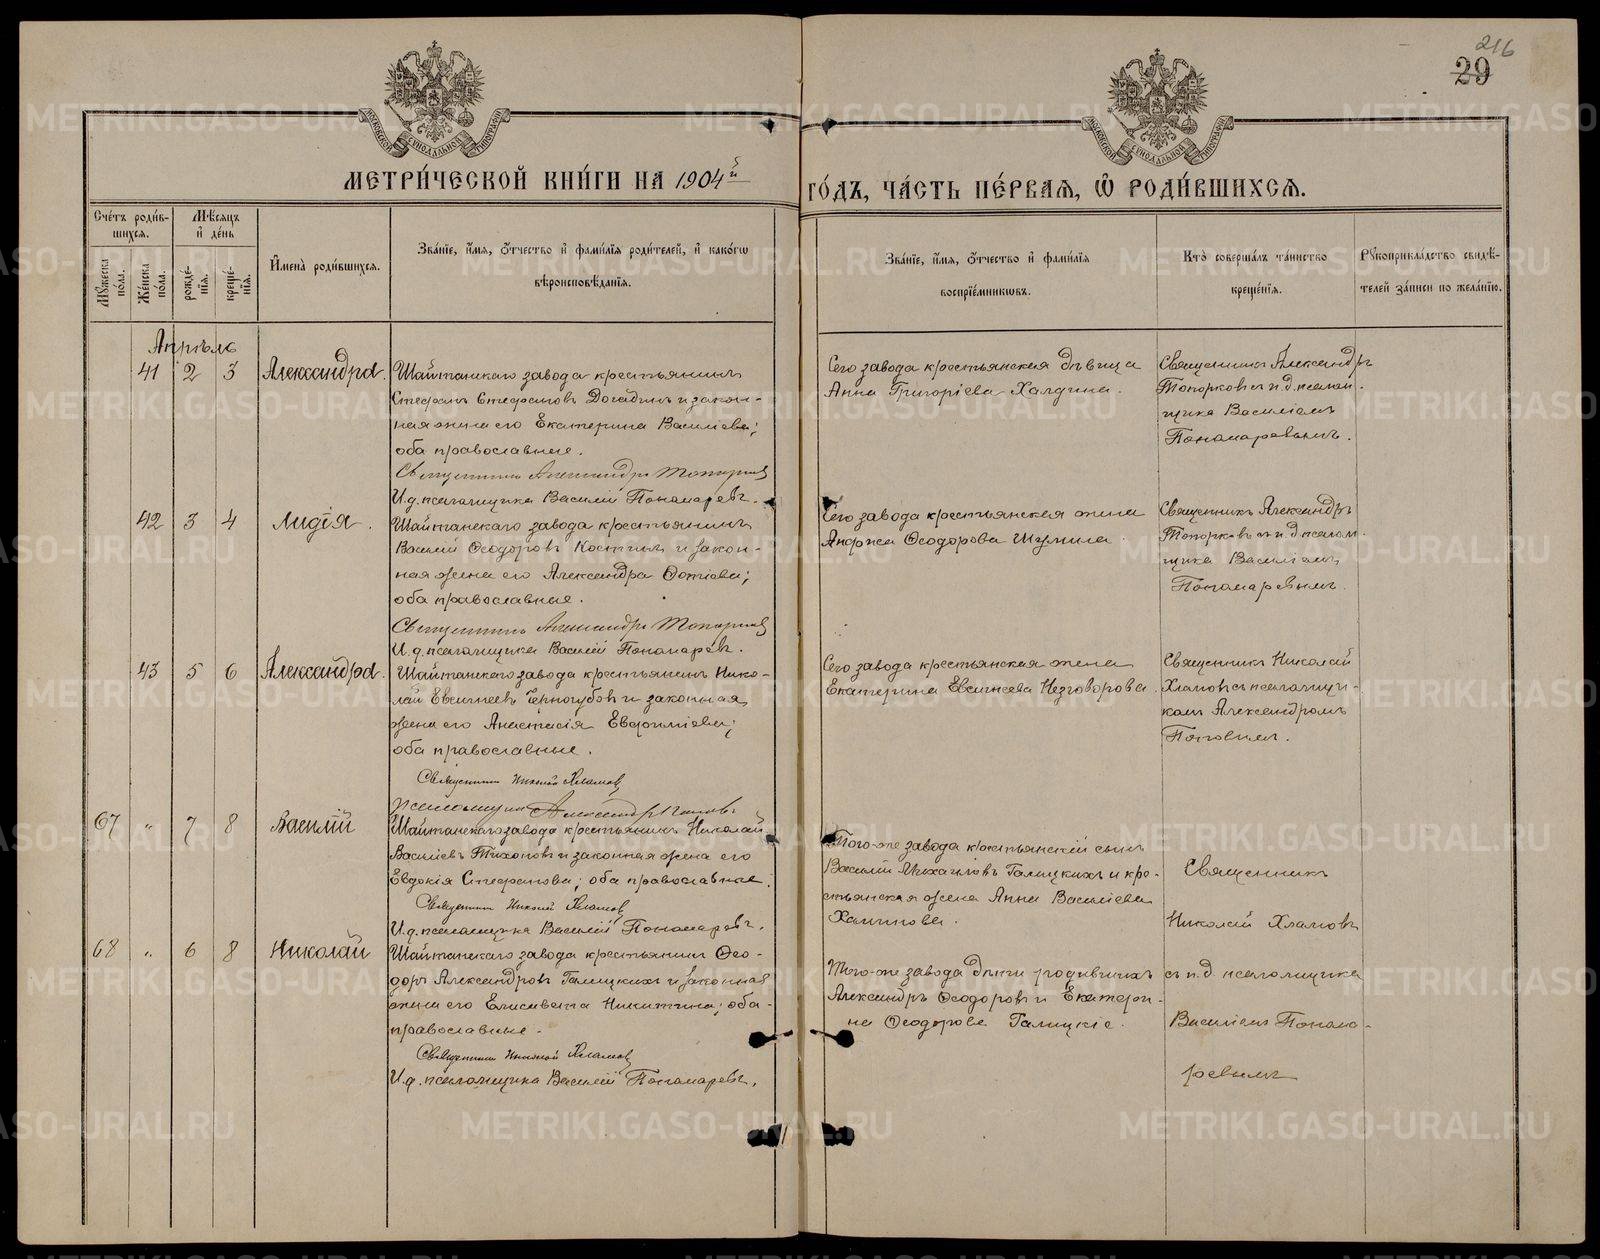 216
29
МОСКОВСКОЙ СѴНОДАЛЬНОЙ ТИПОГРАФІИ
МОСКОВСКОЙ СѴНОДАЛЬНОЙ ТИПОГРАФІИ
МЕТРИ́ЧЕСКОЙ КНИ́ГИ НА 1904й ГО́ДЪ, ЧА́СТЬ ПЕ́РВАЯ, Ѡ҆ РОДИ́ВШИХСѦ.
Сче́тъ роди́вшихся.
Мѣ́сяцъ и҆ де́нь
Мꙋ́жеска по́ла.
Же́нска по́ла.
рожде́нїя.
креще́нїя.
И҆мена̀ роди́вшихся.
Зва́нїе, и҆́мя, ѻ҆́тчество и҆ фами́лїя роди́телей, и҆ како́гѡ
вѣроисповѣ́данїя.
Зва́нїе, и҆́мя, ѻ҆́тчество и҆ фами́лїя
воспрїе́мникѡвъ.
Кто̀ соверша́лъ та́инство
креще́нїя.
Рꙋкоприкла́дство свидѣ́-
телей за́писи по жела́нїю.
Апрѣль
41 2 3 Александра
Шайтанскаго завода крестьянинъ
Стефанъ Стефановъ Догадинъ и закон-
ная жена его Екатерина Василіева;
оба православные.
Священникъ Александръ Топорковъ
И.д. псаломщика Василій Пономаревъ.
Сего завода крестьянская дѣвица
Анна Григоріева Халдина.
Священникъ Александръ
Топорковъ съ и.д. псалом-
щика Василіемъ
Пономаревымъ.
42 3 4 Лидія.
Шайтанскаго завода крестьянинъ
Василій Ѳеодоровъ Костинъ и закон-
ная жена его Александра Фотіева;
оба православные.
Священникъ Александръ Топорковъ
И.д. псаломщика Василій Пономаревъ.
Сего завода крестьянская жена
Анфиса Ѳеодорова Шумила.
Священникъ Александръ
Топорковъ съ и.д. псалом-
щика Василіемъ
Пономаревымъ.
43 5 6 Александра.
Шайтанскаго завода крестьянинъ Нико-
лай Евсигнеевъ Черногубовъ и законная
жена его Анастасія Евфиміева;
оба православные.
Священникъ Николай Хламовъ
Псаломщикъ Александръ Поповъ
Сего завода крестьянская жена
Екатерина Евсигнеева Незговорова.
Священникъ Николай
Хламовъ съ псаломщи-
комъ Александромъ
Поповымъ.
67 „ 7 8 Василій
Шайтанскаго завода крестьянинъ Николай
Василіевъ Тихоновъ и законная жена его
Евдокія Стефанова; оба православные.
Священникъ Николай Хламовъ
И.д. псаломщика Василій Пономаревъ.
Того-же завода крестьянскій сынъ
Василій Михаиловъ Галицкихъ и кре-
стьянская жена Анна Василіева
Священникъ
Николай Хламовъ
68 „ 6 8 Николай
Шайтанскаго завода крестьянинъ Ѳео-
доръ Александровъ Галицкихъ и законная
жена его Елисавета Никитина; оба-
православные.
Священникъ Николай Хламовъ
И.д. псаломщика Василій Пономаревъ.
Того-же завода дѣти родившихъ
Александръ Ѳеодоровъ и Екатери-
на Ѳеодорова Галицкіе.
съ и.д. псаломщика
Василіемъ Понома-
ревымъ